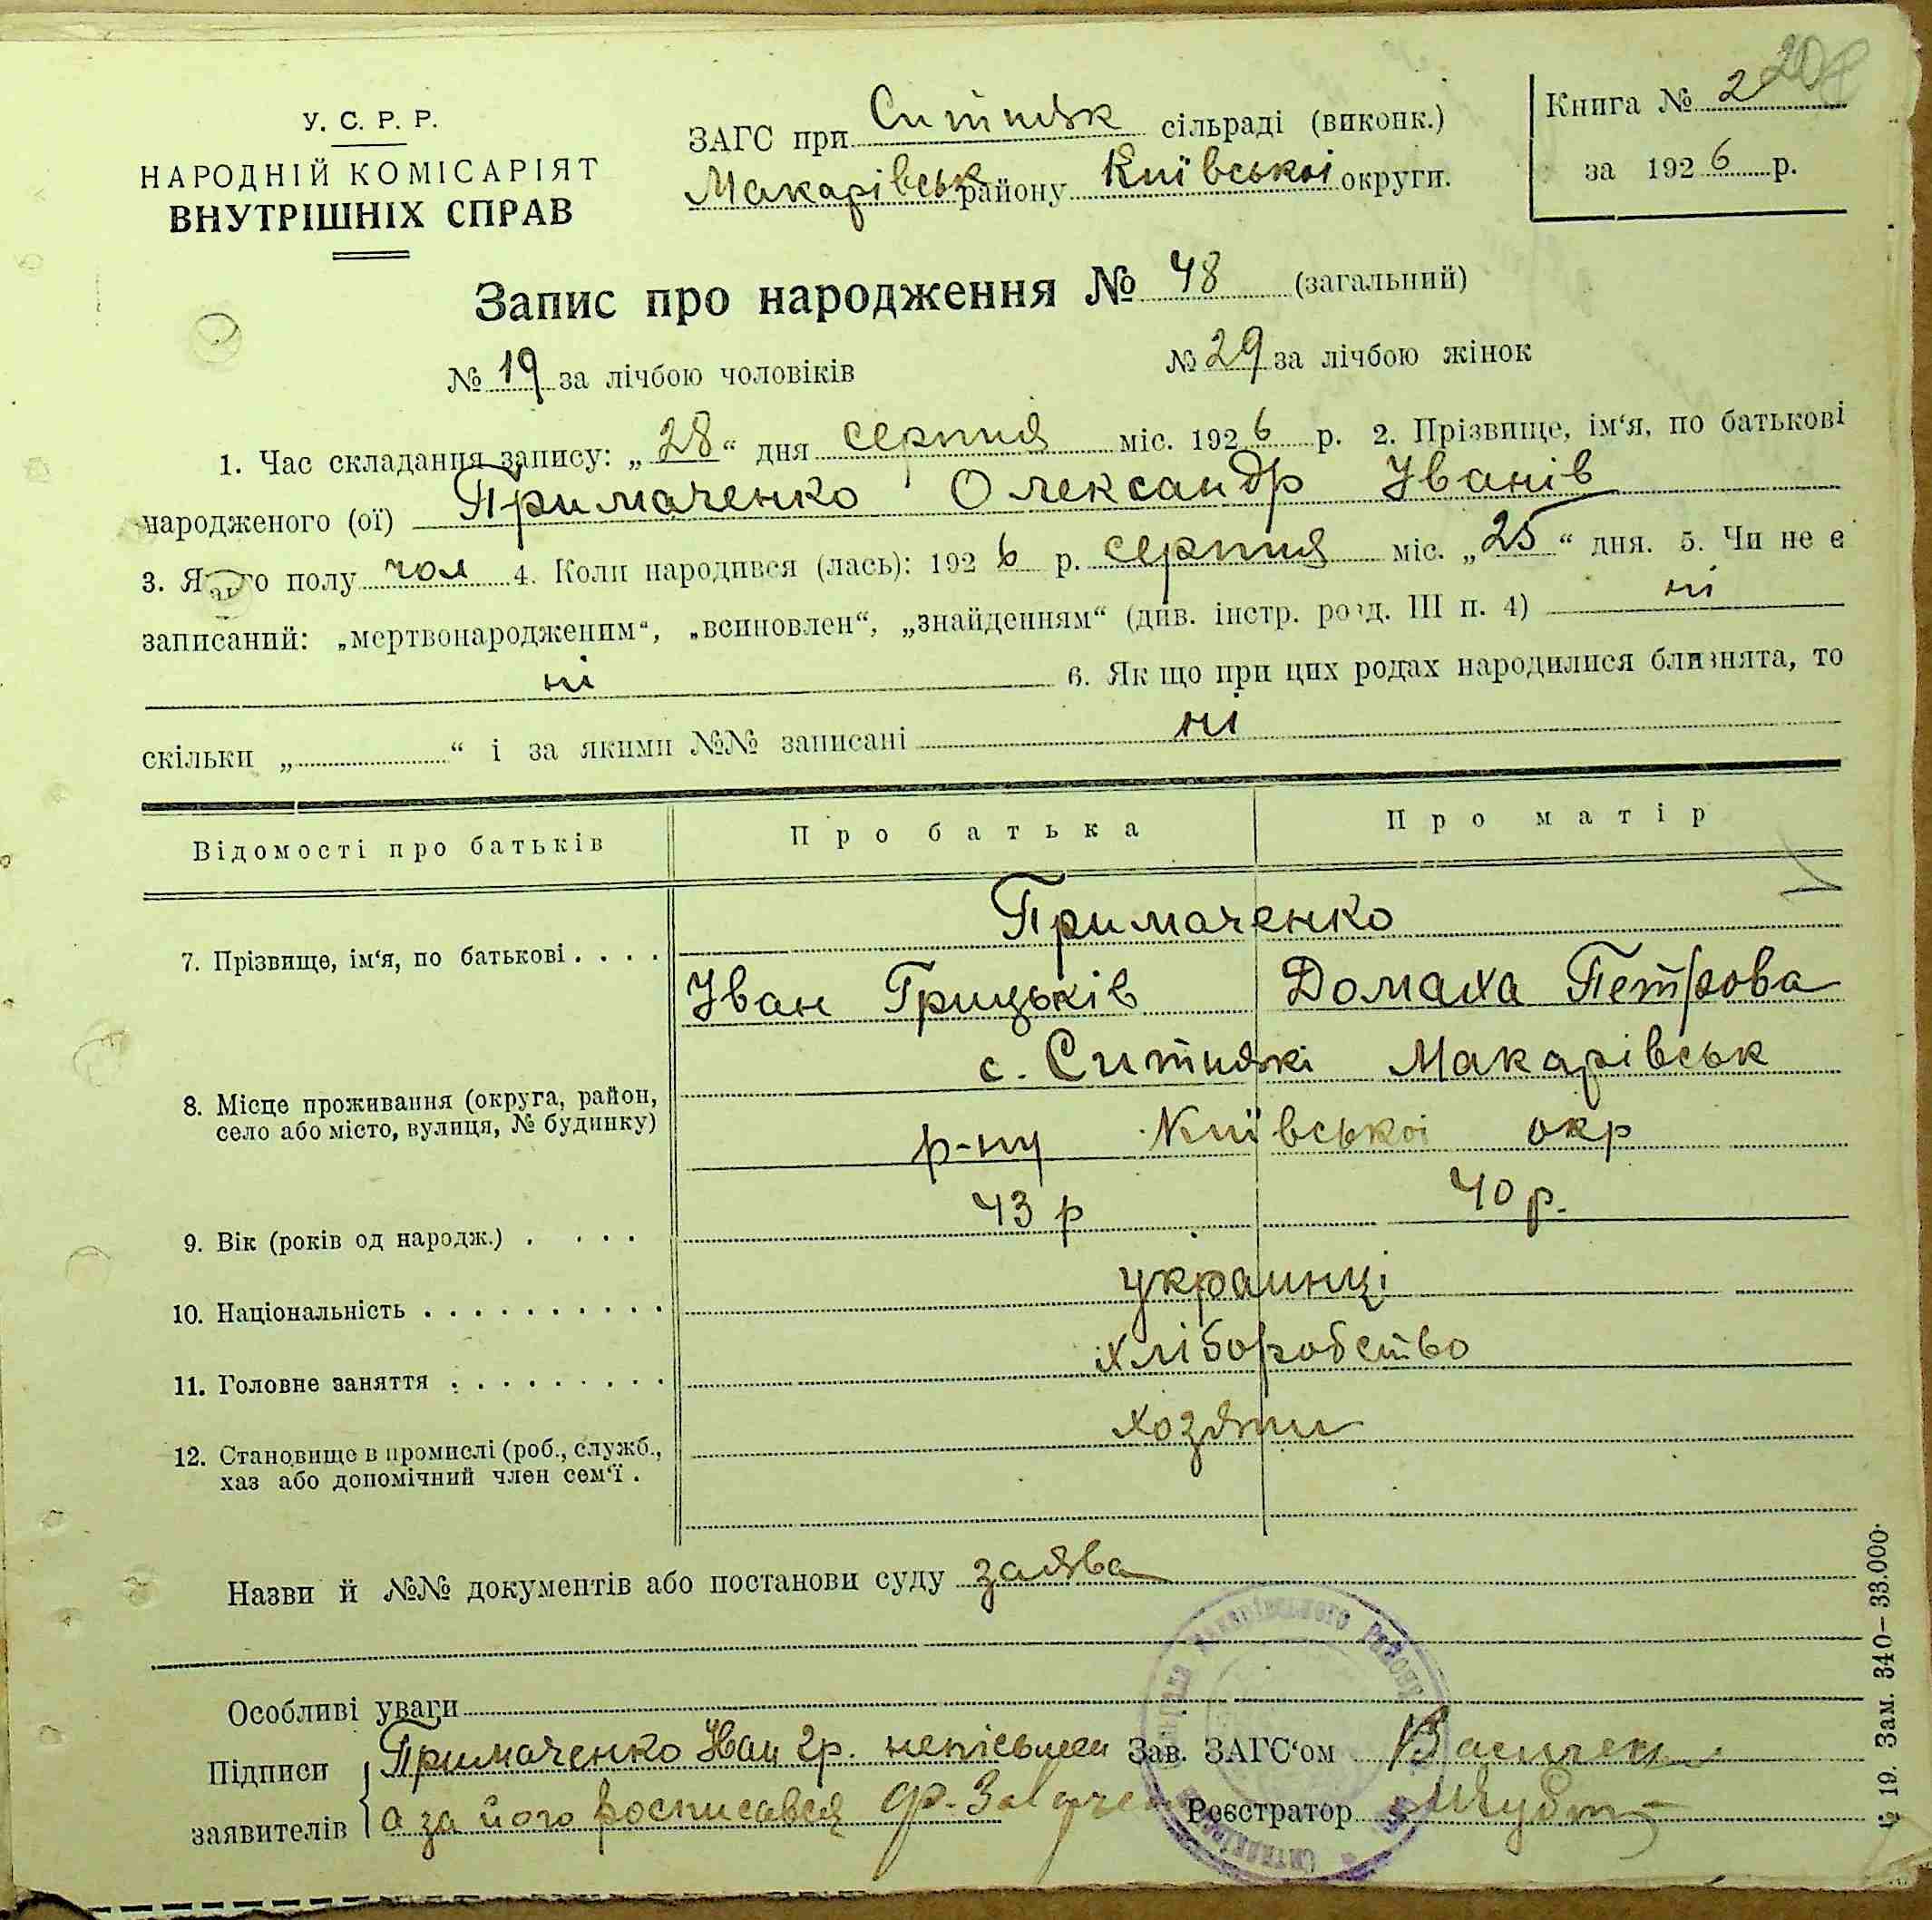 У. С. Р. Р.
НАРОДНІЙ КОМІСАРІЯТ
ВНУТРІШНІХ СПРАВ
ЗАГС при Ситняк сільраді (виконк.)
Макарівськ району Київської округи.
Книга № 2
за 1926 р.
Запис про народження № 48 (загальний)
№ 19 за лічбою чоловіків № 29 за лічбою жінок
1. Час складання запису: „28“ дня серпня міс. 1926 р. 2. Прізвище, ім‘я, по батькові
народженого (ої) Примаченко Олександр Іванів
3. Якого полу чол 4. Коли народився (лась): 1926 р. серпня міс. „25“ дня. 5. Чи не є
записаний: „мертвонародженим“, „всиновлен“, „знайденням“ (див. інстр. розд. III п. 4) ні
ні 6. Як що при цих родах народилися близнята, то
скільки „ “ і за якими №№ записані ні
Відомості про батьків Про батька Про матір
Примаченко
7. Прізвище, ім‘я, по батькові . . . .
Іван Грицьків Домаха Петрова
с. Ситнякі Макарівськ
8. Місце проживання (округа, район,
село або місто, вулиця, № будинку)
р-ну Київської окр
9. Вік (років од народж.) . . . . . 43 р 40 р.
10. Національність . . . . . . . . . . украинці
11. Головне заняття . . . . . . . . . хліборобство
12. Становище в промислі (роб., служб., хозяти
хаз або допомічний член сем‘ї .
Назви й №№ документів або постанови суду заява
Особливі уваги
Підписи Примаченко Иван Гр. непісьмен Зав. ЗАГС‘ом
заявителів а за його росписався Реєстратор
№ 19. Зам. 340–33.000.
Макарівського району